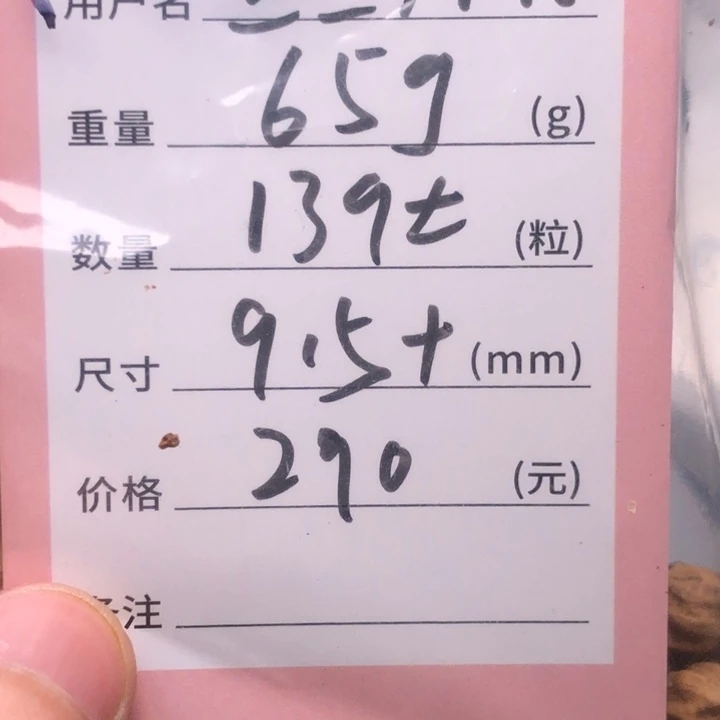 用户名
重量 65g (g)
数量 139± (粒)
尺寸 9.5+ (mm)
价格 290 (元)
备注